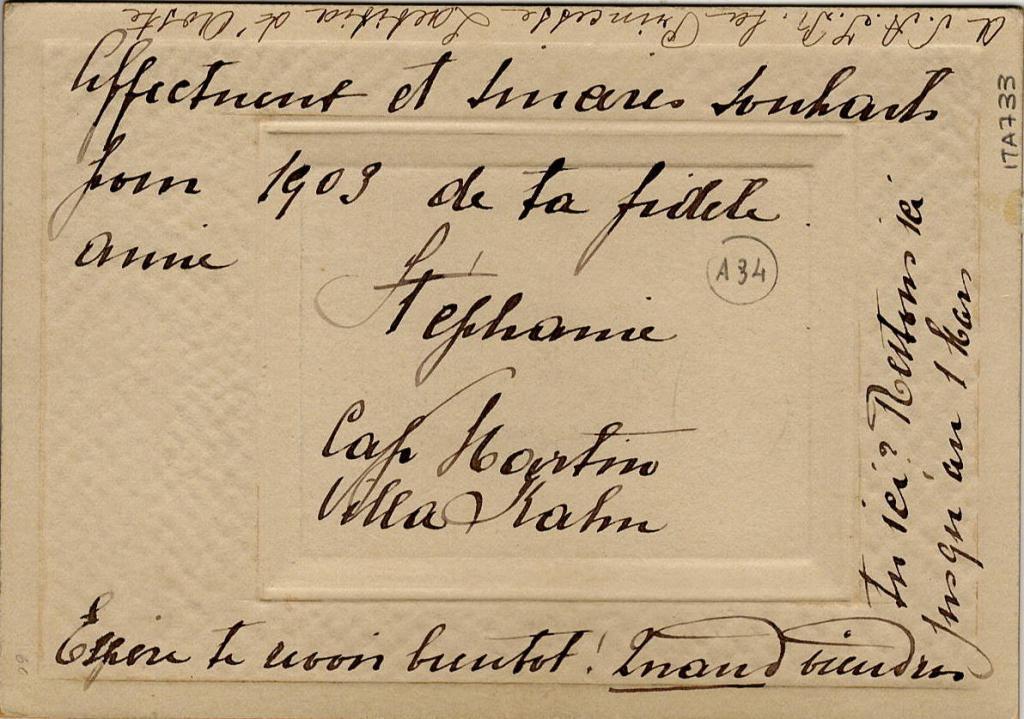 a S.A.I.R. la Princesse Laetitia d'Aoste
Affectueux et sincères souhaits
pour 1903 de ta fidèle
amie
Stéphanie
A34
Cap Martin
Villa Kahn
Espère te revoir bientot! Quand viendras
tu ici? Restons ici
jusqu'au 1 Mars
ITA733